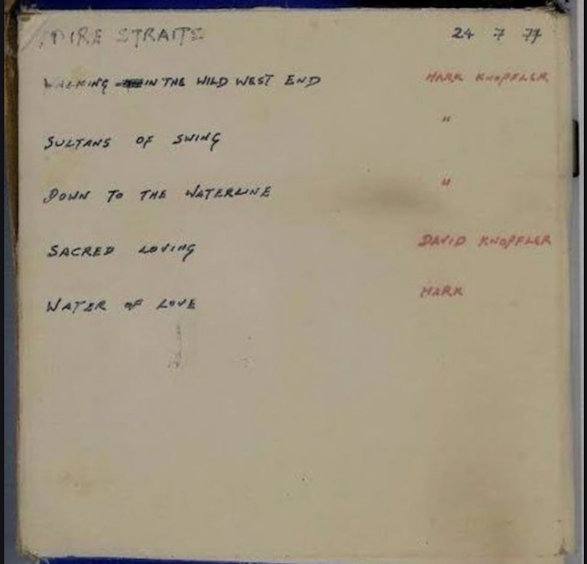 DIRE STRAITS 24 7 77
WALKING IN THE WILD WEST END MARK KNOPFLER
"
SULTANS OF SWING
DOWN TO THE WATERLINE "
SACRED LOVING DAVID KNOPFLER
WATER OF LOVE MARK